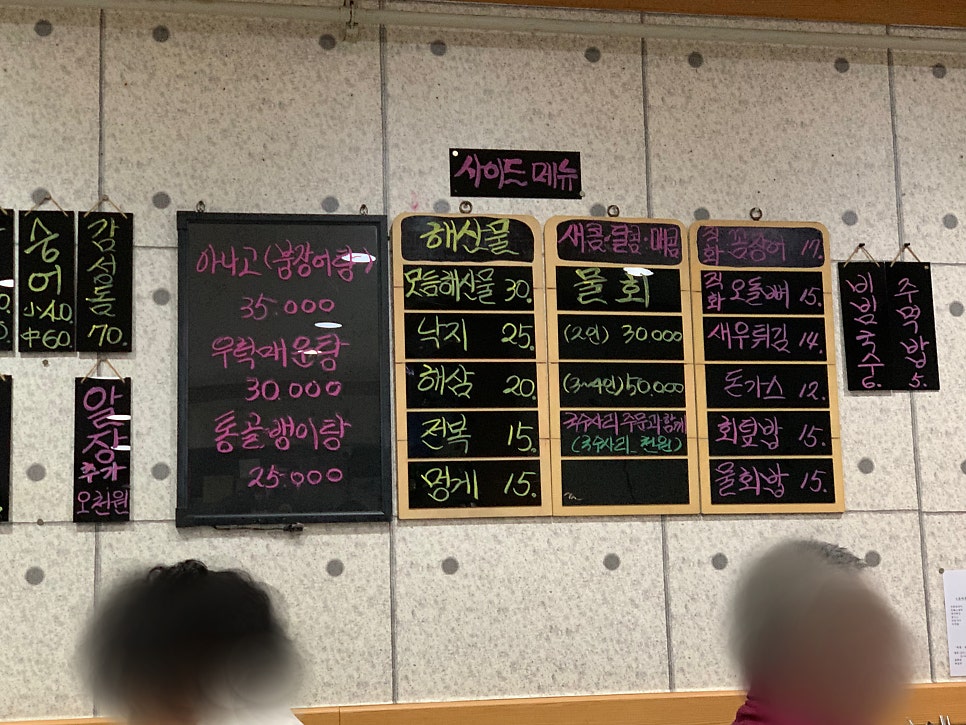 사이드 메뉴
숭어
小 40
中 60.
감성돔
70.
알장
추가
오천원
아나고 (붕장어탕)
35:000
우럭매운탕
30.000
통골뱅이탕
25:000
해산물
모듬해산물 30.
낙지 25.
해삼 20.
전복 15.
멍게 15.
새콤·달콤·매콤
물회
(2인) 30000
(3~4인) 50.000
국수사리 주문과 함께
(국수사리_천원)
직화 꼼장어 17.
직화 오돌뼈 15.
새우튀김 14.
돈가스 12.
회덮밥 15.
물회밥 15.
비빔국수
6.
주먹밥
5.